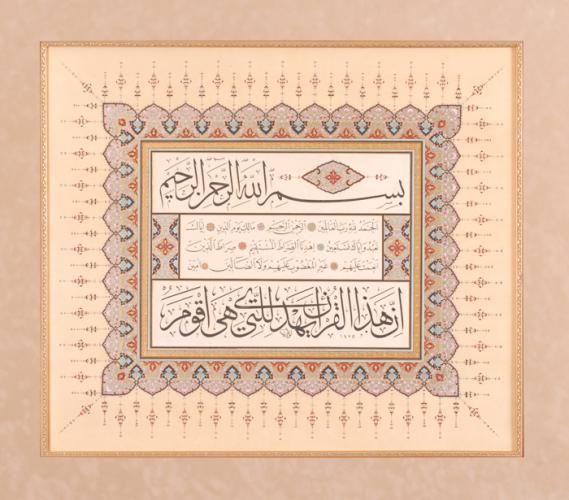 بسم الله الرحمن الرحيم
الحمد لله رب العالمين الرحمن الرحيم مالك يوم الدين إياك
نعبد وإياك نستعين اهدنا الصراط المستقيم صراط الذين
أنعمت عليهم غير المغضوب عليهم ولا الضالين آمين
إن هذا القرآن يهدي للتي هي أقوم